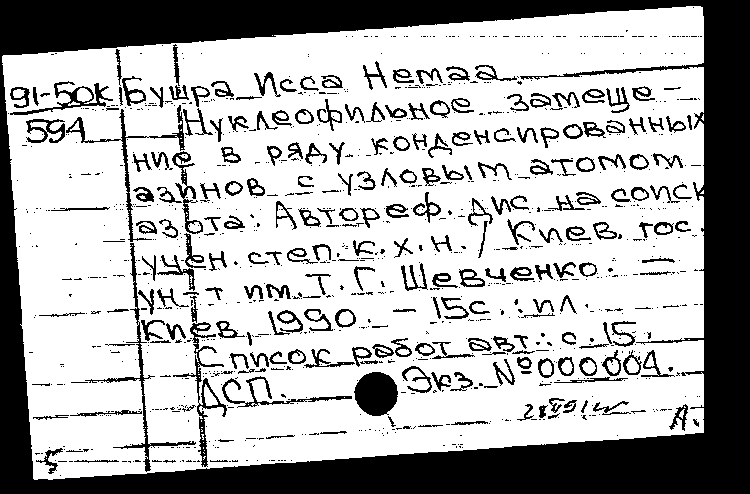 91-50к Бушра Исса Немаа.
594 Нуклеофильное замеще-
ние в ряду конденсированных
азинов с узловым атомом
азота: Автореф. дис. на соиск
учен. степ. к. х. н. / Киев. гос.
ун-т им. Т. Г. Шевченко. —
Киев, 1990. — 15с. : ил.
Список работ авт.: с. 15.
ДСП. Экз. № 000004.
А.
5